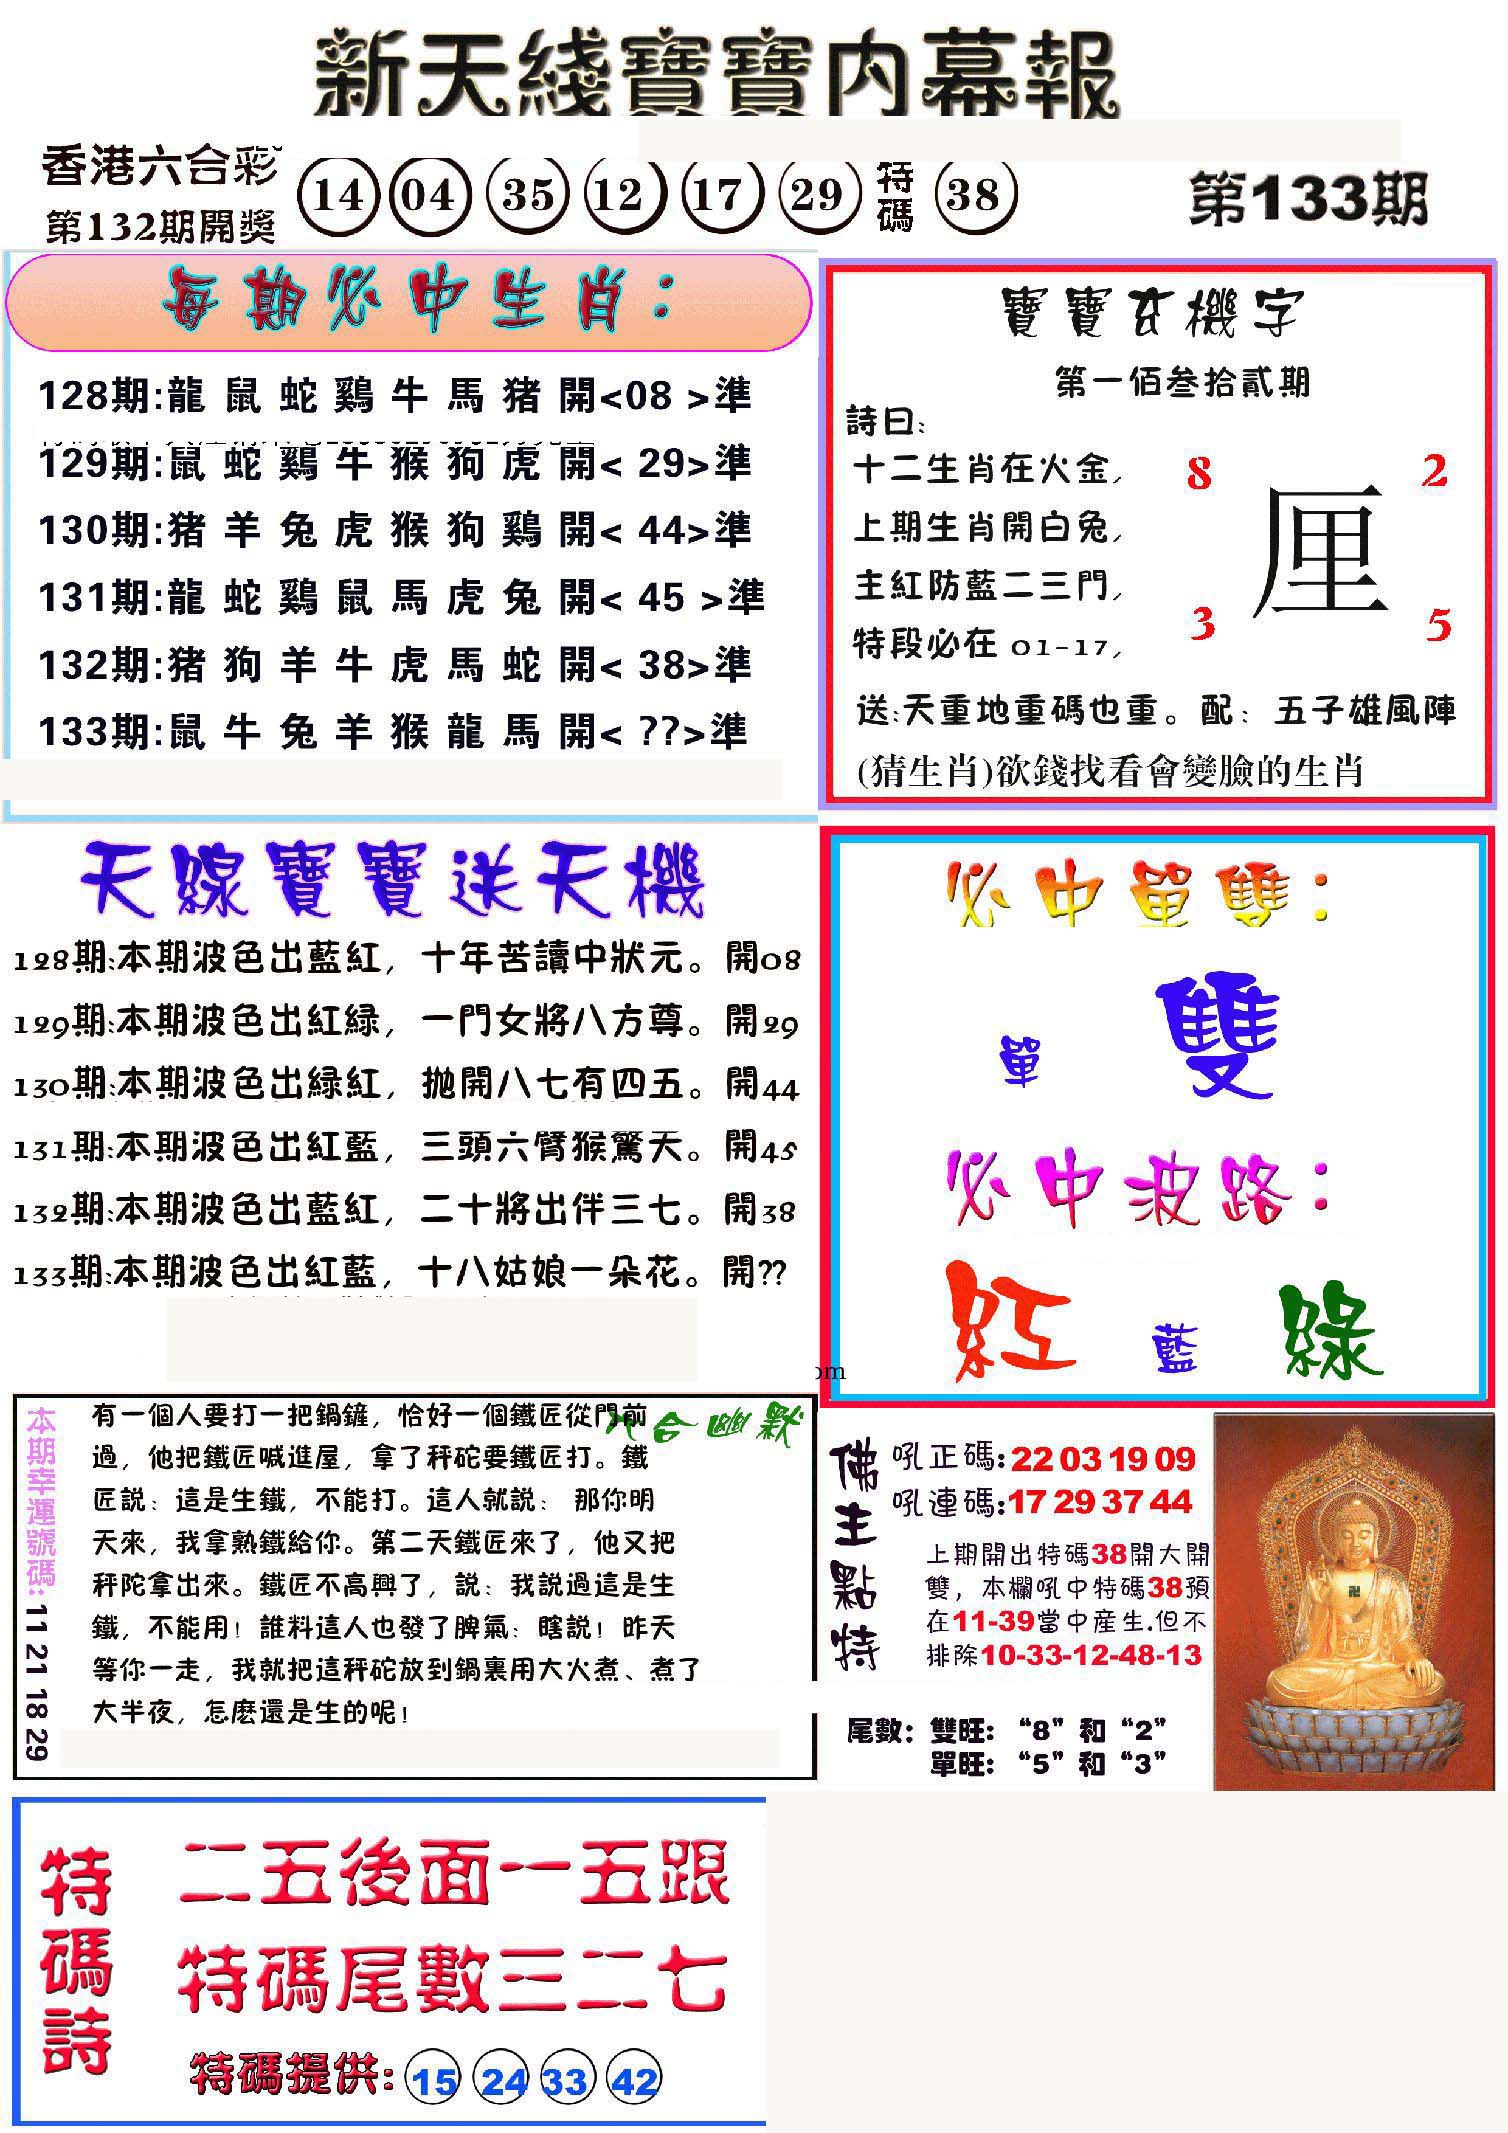 新天綫寶寶内幕報
香港六合彩
第132期開獎
14 04 35 12 17 29 特碼 38
第133期
每期必中生肖：
128期:龍 鼠 蛇 鷄 牛 馬 猪 開<08 >準
129期:鼠 蛇 鷄 牛 猴 狗 虎 開< 29>準
130期:猪 羊 兔 虎 猴 狗 鷄 開< 44>準
131期:龍 蛇 鷄 鼠 馬 虎 兔 開< 45 >準
132期:猪 狗 羊 牛 虎 馬 蛇 開< 38>準
133期:鼠 牛 兔 羊 猴 龍 馬 開< ??>準
寶寶玄機字
第一佰叁拾貳期
詩曰:
十二生肖在火金,
上期生肖開白兔,
主紅防藍二三門,
特段必在 01-17,
8 2
厘
3 5
送:天重地重碼也重。配: 五子雄風陣
(猜生肖)欲錢找看會變臉的生肖
天線寶寶送天機
128期:本期波色出藍紅, 十年苦讀中狀元。開08
129期:本期波色出紅緑, 一門女將八方尊。開29
130期:本期波色出緑紅, 拋開八七有四五。開44
131期:本期波色出紅藍, 三頭六臂猴驚天。開45
132期:本期波色出藍紅, 二十將出伴三七。開38
133期:本期波色出紅藍, 十八姑娘一朵花。開??
必中單雙：
單 雙
必中波路：
紅 藍 綠
om
六合幽默
本期幸運號碼: 11 21 18 29
有一個人要打一把鍋鏟, 恰好一個鐵匠從門前
過, 他把鐵匠喊進屋, 拿了秤砣要鐵匠打。鐵
匠説: 這是生鐵, 不能打。這人就説: 那你明
天來, 我拿熟鐵給你。第二天鐵匠來了, 他又把
秤陀拿出來。鐵匠不高興了, 説: 我説過這是生
鐵, 不能用! 誰料這人也發了脾氣: 瞎説! 昨天
等你一走, 我就把這秤砣放到鍋裏用大火煮、煮了
大半夜, 怎麽還是生的呢!
佛主點特
吼正碼:22 03 19 09
吼連碼:17 29 37 44
上期開出特碼38開大開
雙, 本欄吼中特碼38預
在11-39當中産生.但不
排除10-33-12-48-13
尾數: 雙旺: “8” 和 “2”
單旺: “5” 和 “3”
特碼詩
二五後面一五跟
特碼尾數三二七
特碼提供: 15 24 33 42